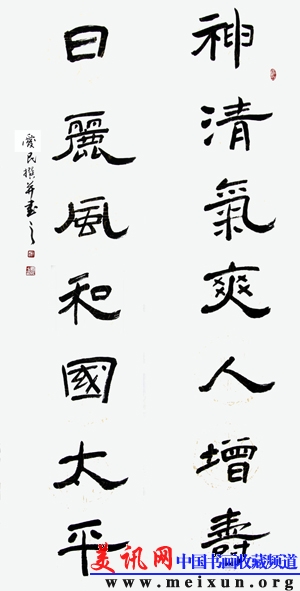 神清氣爽人增壽
日麗風和國太平
愛民撰并書之
美讯网 中国书画收藏频道
www.meixun.org